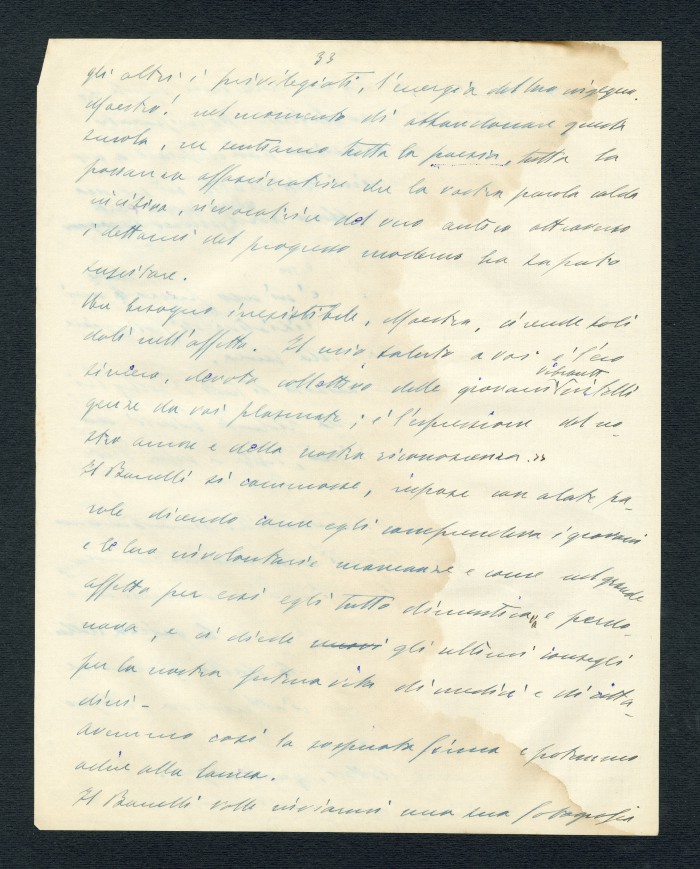 33
gli altri i privilegiati, l'energia del suo ingegno.
Maestro! nel momento di abbandonare questa
scuola, ne sentiamo tutta la poesia, tutta la
possanza affascinatrice che la vostra parola calda
incisiva, rievocatrice del vero antico attraverso
i dettami del progresso moderno ha saputo
suscitare.
Un bisogno irresistibile, Maestro, ci rende soli
dali nell'affetto. Il mio saluto a voi è l'eco
vibrante
sincero, devoto collettivo delle giovani intelli
genze da voi plasmate; è l'espressione del no-
stro amore e della nostra riconoscenza.»
Il si commosse, rispose con alate pa-
role dicendo come egli comprendeva i giovani
e le loro involontarie mancanze e come nel grande
affetto per essi egli tutto dimentica e perdo-
nava, e ci diede nuovi gli ultimi consigli
per la nostra futura vita di medici e di citta-
dini-
avemmo così la sospirata firma e potemmo
adire alla laurea.
Il volle inviarmi una sua fotografia